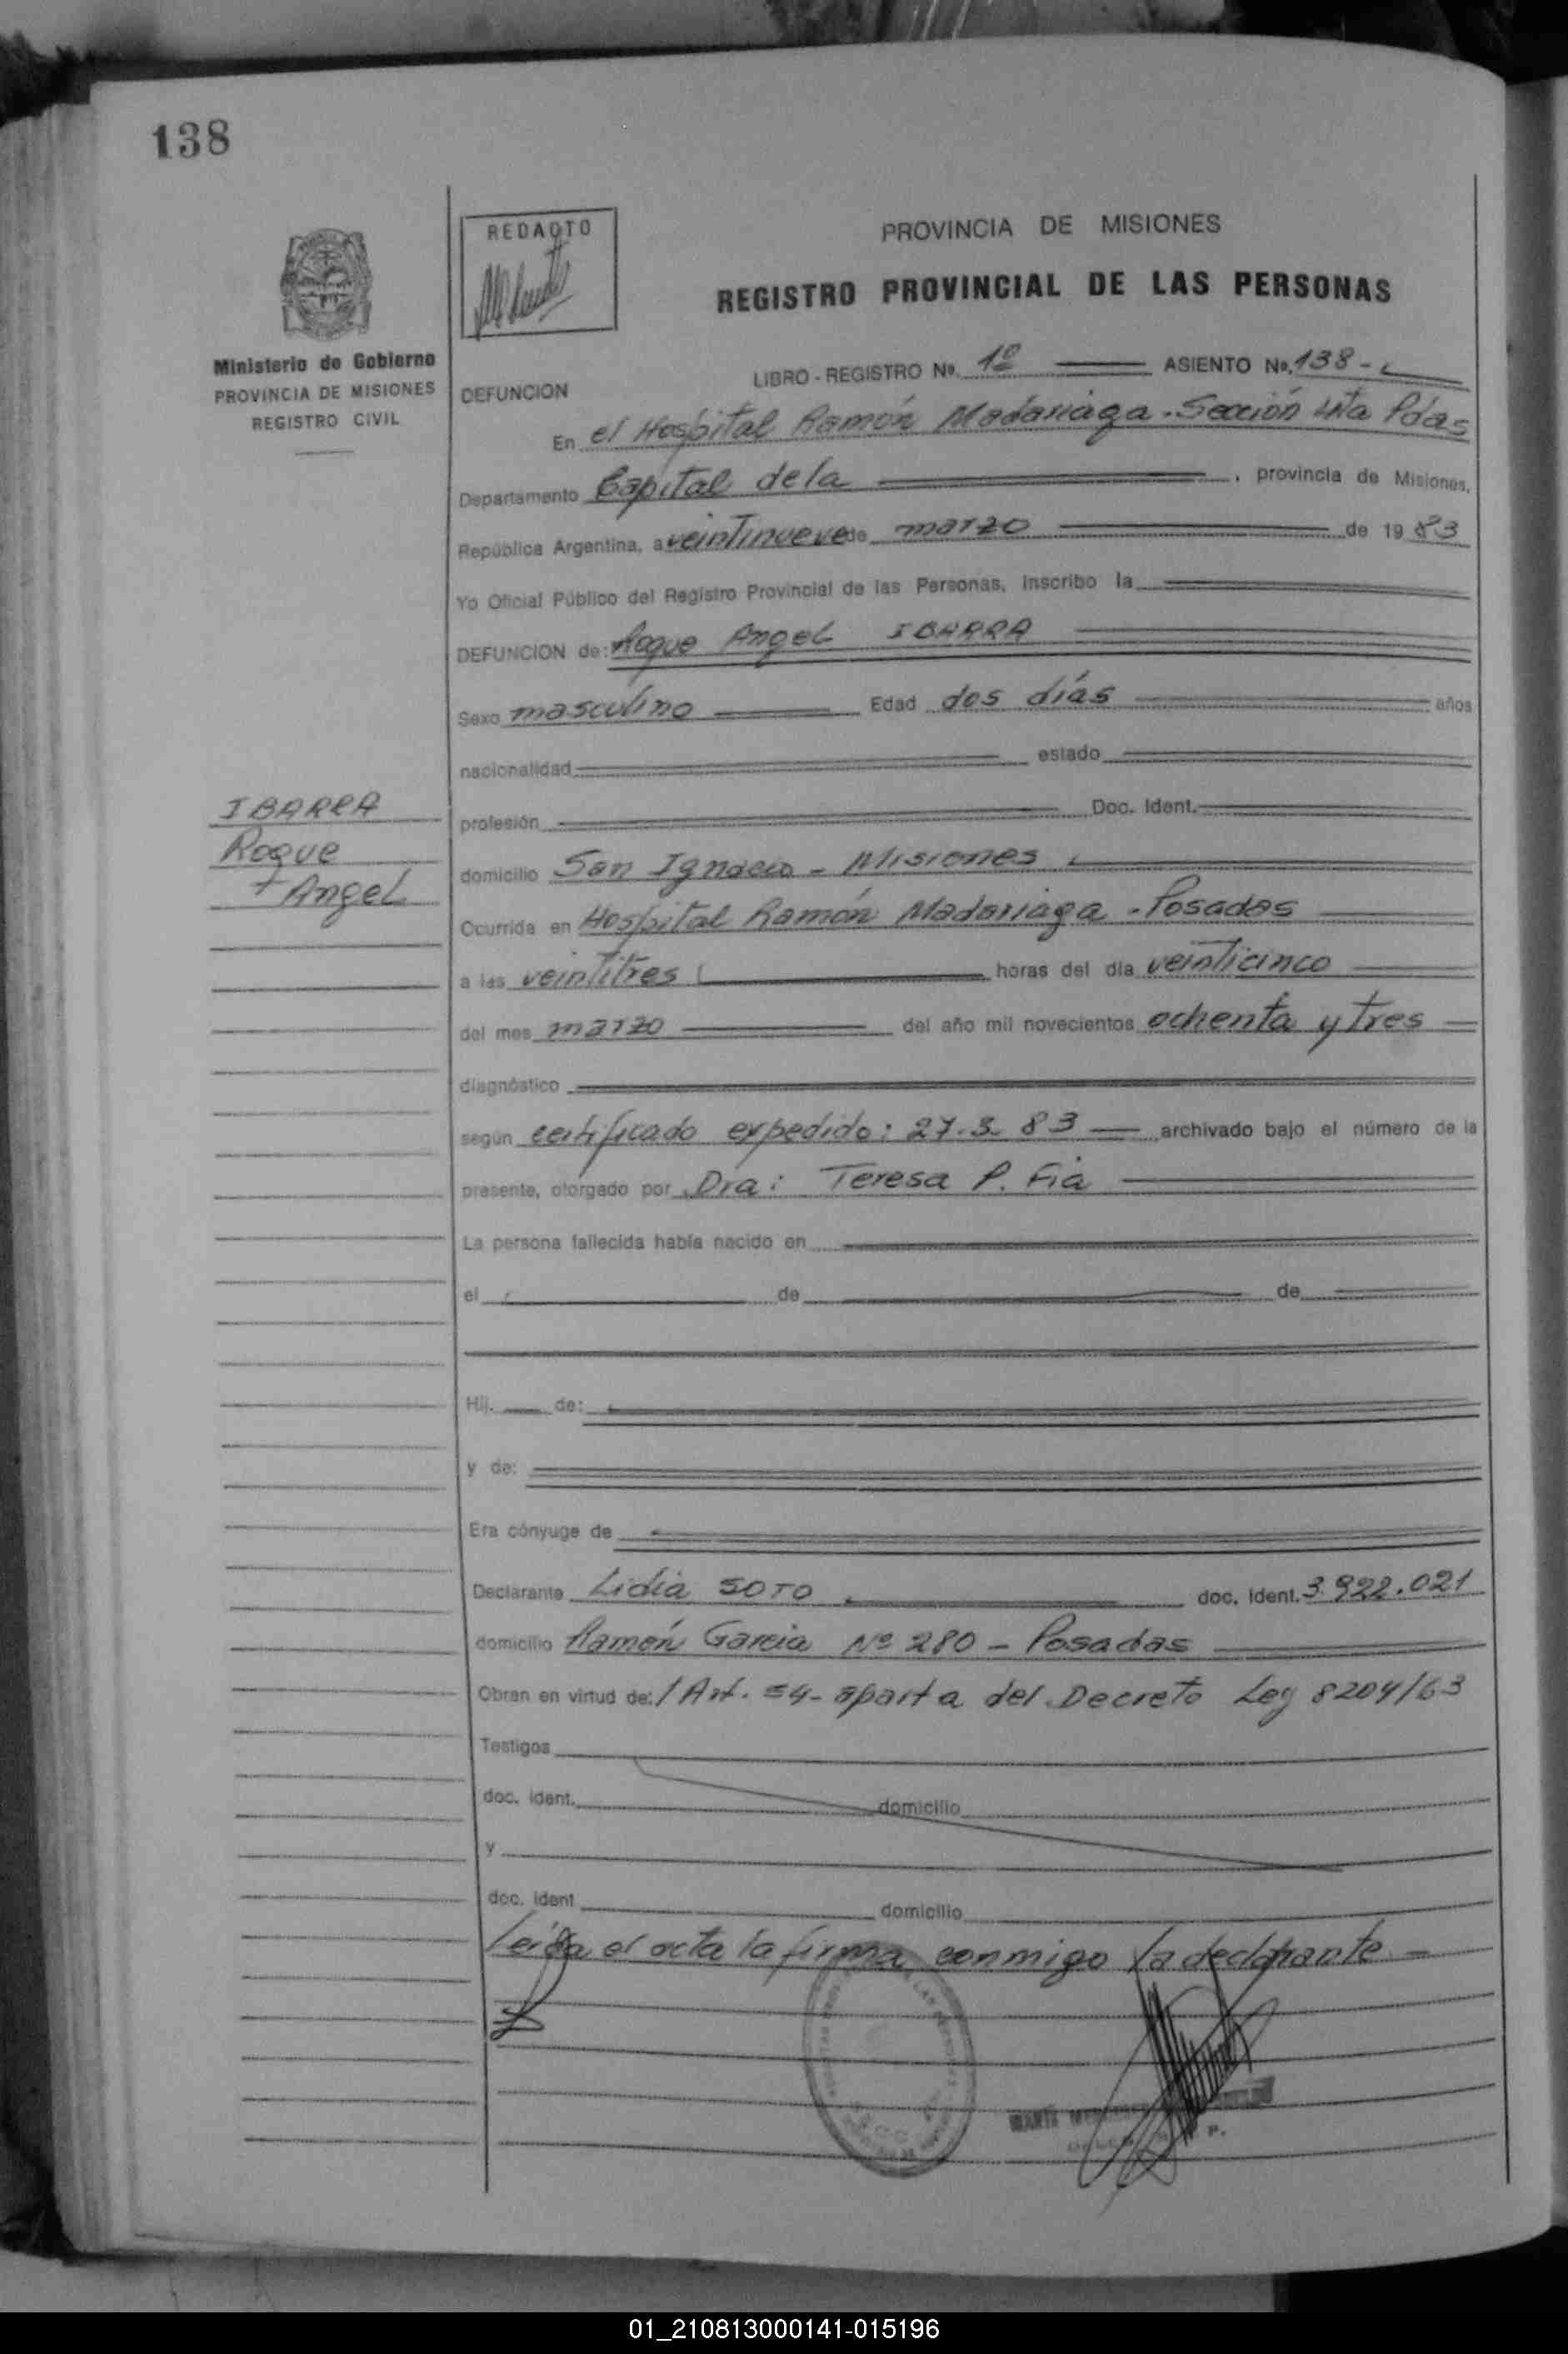 138
REDACTO
PROVINCIA DE MISIONES
REGISTRO PROVINCIAL DE LAS PERSONAS
Ministerio de Gobierno
PROVINCIA DE MISIONES
REGISTRO CIVIL
LIBRO - REGISTRO No. 1º ASIENTO No. 138 -
DEFUNCION
En el Hospital Ramón Madariaga - Sección 4ta Pdas
Departamento Capital de la , provincia de Misiones,
República Argentina, a veintinueve de marzo de 1983
Yo Oficial Público del Registro Provincial de las Personas, inscribo la
DEFUNCION de: Roque Angel IBARRA
Sexo masculino Edad dos días años
nacionalidad estado
IBARRA
Roque
+ Angel
profesión Doc. Ident.
domicilio San Ignacio - Misiones
Ocurrida en Hospital Ramón Madariaga - Posadas
a las veintitres horas del día veinticinco
del mes marzo del año mil novecientos ochenta y tres
diagnóstico
según certificado expedido: 27.3.83 archivado bajo el número de la
presente, otorgado por Dra: Teresa P. Fia
La persona fallecida había nacido en
el de de
Hij. de:
y de:
Era cónyuge de
Declarante Lidia SOTO doc. ident. 3.922.021
domicilio Ramón Garcia Nº 280 - Posadas
Obran en virtud de: / Art. 54 - apart a del Decreto Ley 8204/63
Testigos
doc. ident. domicilio
y
doc. ident domicilio
Leida el acta la firma conmigo la declarante -
01_210813000141-015196